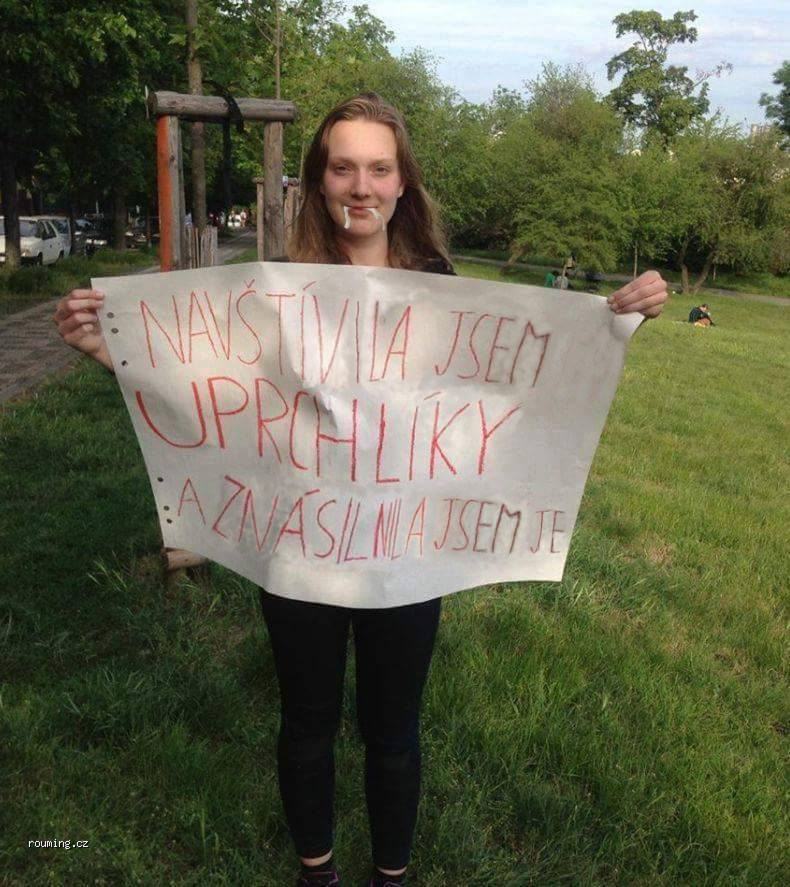 NAVŠTÍVILA JSEM
UPRCHLÍKY
A ZNÁSILNILA JSEM JE
rouming.cz